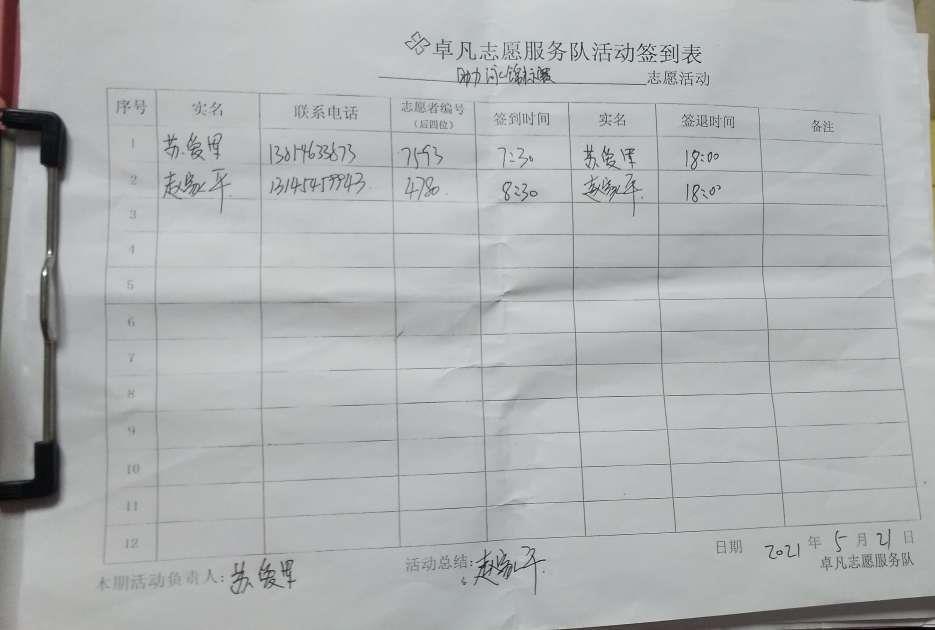 卓凡志愿服务队活动签到表
助力 锦标赛 志愿活动
序号 实名 联系电话 志愿者编号(后四位) 签到时间 实名 签退时间 备注
1 苏俊男 13614633673 7593 7:30 苏俊男 18:00
2 赵家平 13145459943 4780 8:30 赵家平 18:00
3
4
5
6
7
8
9
10
11
12
日期 2021年5月21日
本期活动负责人:苏俊男 活动总结:赵家平
卓凡志愿服务队